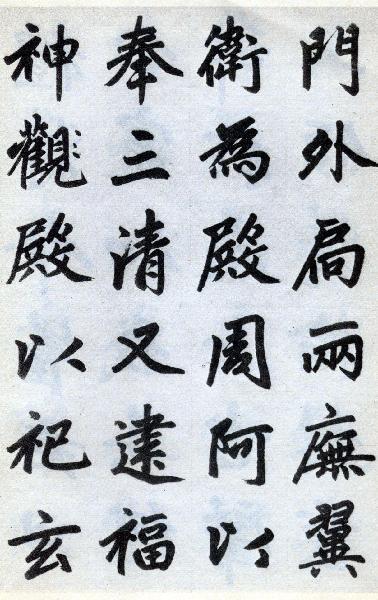 門外扃兩廡翼
衛為殿周阿以
奉三清又建福
神觀殿以祀玄